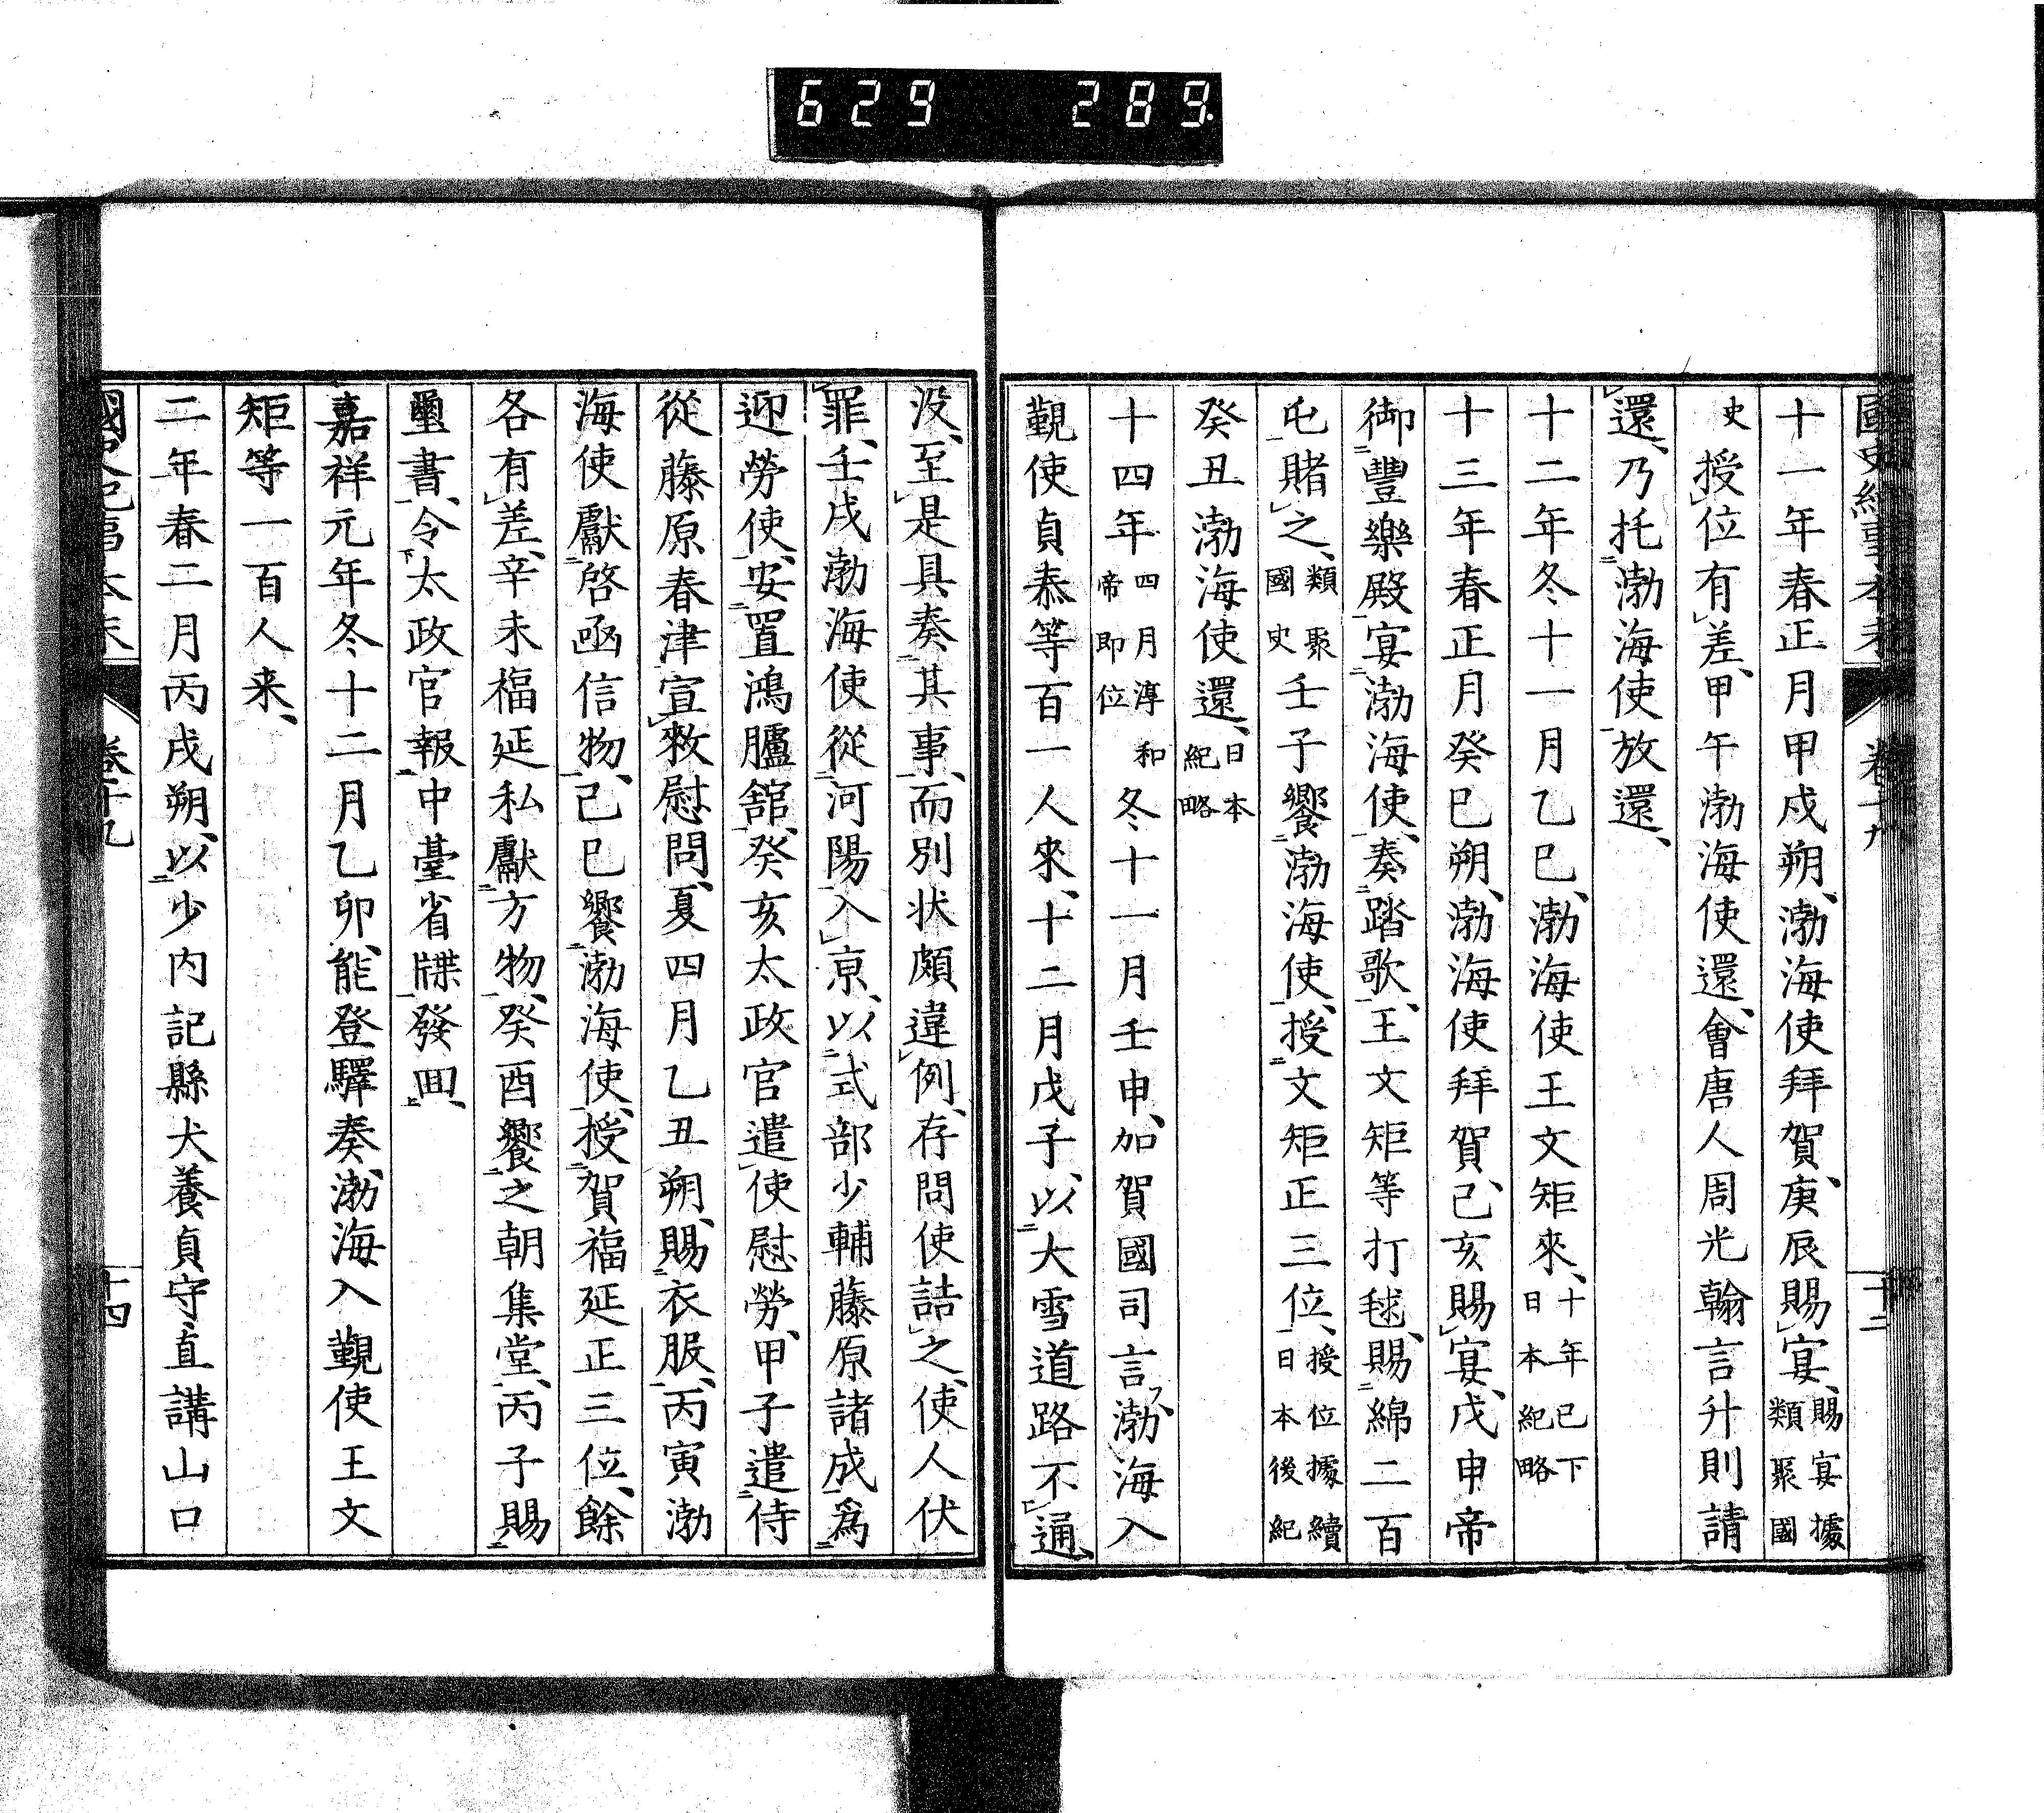 629 289
十一年春正月甲戌朔、渤海使拜賀、庚辰賜宴、賜宴據類聚國
史授位有差、甲午渤海使還、會唐人周光翰言升則請
還、乃托渤海使放還、
十二年冬十一月乙巳、渤海使王文矩來、十年已下日本紀略
十三年春正月癸巳朔、渤海使拜賀、己亥賜宴、戊申帝
御豐樂殿宴渤海使、奏踏歌、王文矩等打毬、賜綿二百
屯賭之、類聚國史壬子饗渤海使、授文矩正三位、授位據續日本後紀
癸丑渤海使還、日本紀略
十四年四月淳和帝即位冬十一月壬申、加賀國司言、渤海入
覲使貞泰等百一人來、十二月戊子、以大雪道路不通、
沒、至是具奏其事、而別狀頗違例、存問使詰之、使人伏
罪、壬戌渤海使從河陽入京、以式部少輔藤原諸成爲
迎勞使、安置鴻臚舘、癸亥太政官遣使慰勞、甲子遣侍
從藤原春津宣敕慰問、夏四月乙丑朔、賜衣服、丙寅渤
海使獻啓函信物、己巳饗渤海使、授賀福延正三位、餘
各有差、辛未福延私獻方物、癸酉饗之朝集堂、丙子賜
璽書、令太政官報中臺省牒發回、
嘉祥元年冬十二月乙卯、能登驛奏、渤海入覲使王文
矩等一百人来、
二年春二月丙戌朔、以少内記縣犬養貞守、直講山口
卷十九
十四